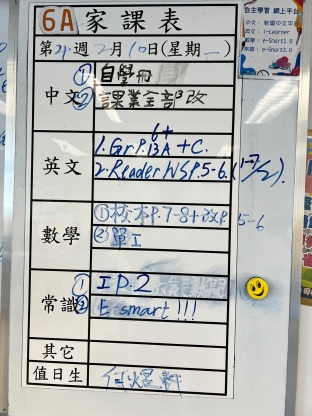 6A 家課表
第21週2月10日(星期一)
中文
①自學冊
②課業全部改
英文
6+
1. Gr P.13A + C.
2. Reader WS P.5-6. (17/2).
數學
①校本P.7-8+改P.5-6
②單I
常識
① I P.2
② E-smart!!!
其它
值日生
自主學習 網上平台
英文：i-Learner
數學：e-Smart2.0
常識：e-Smart2.0